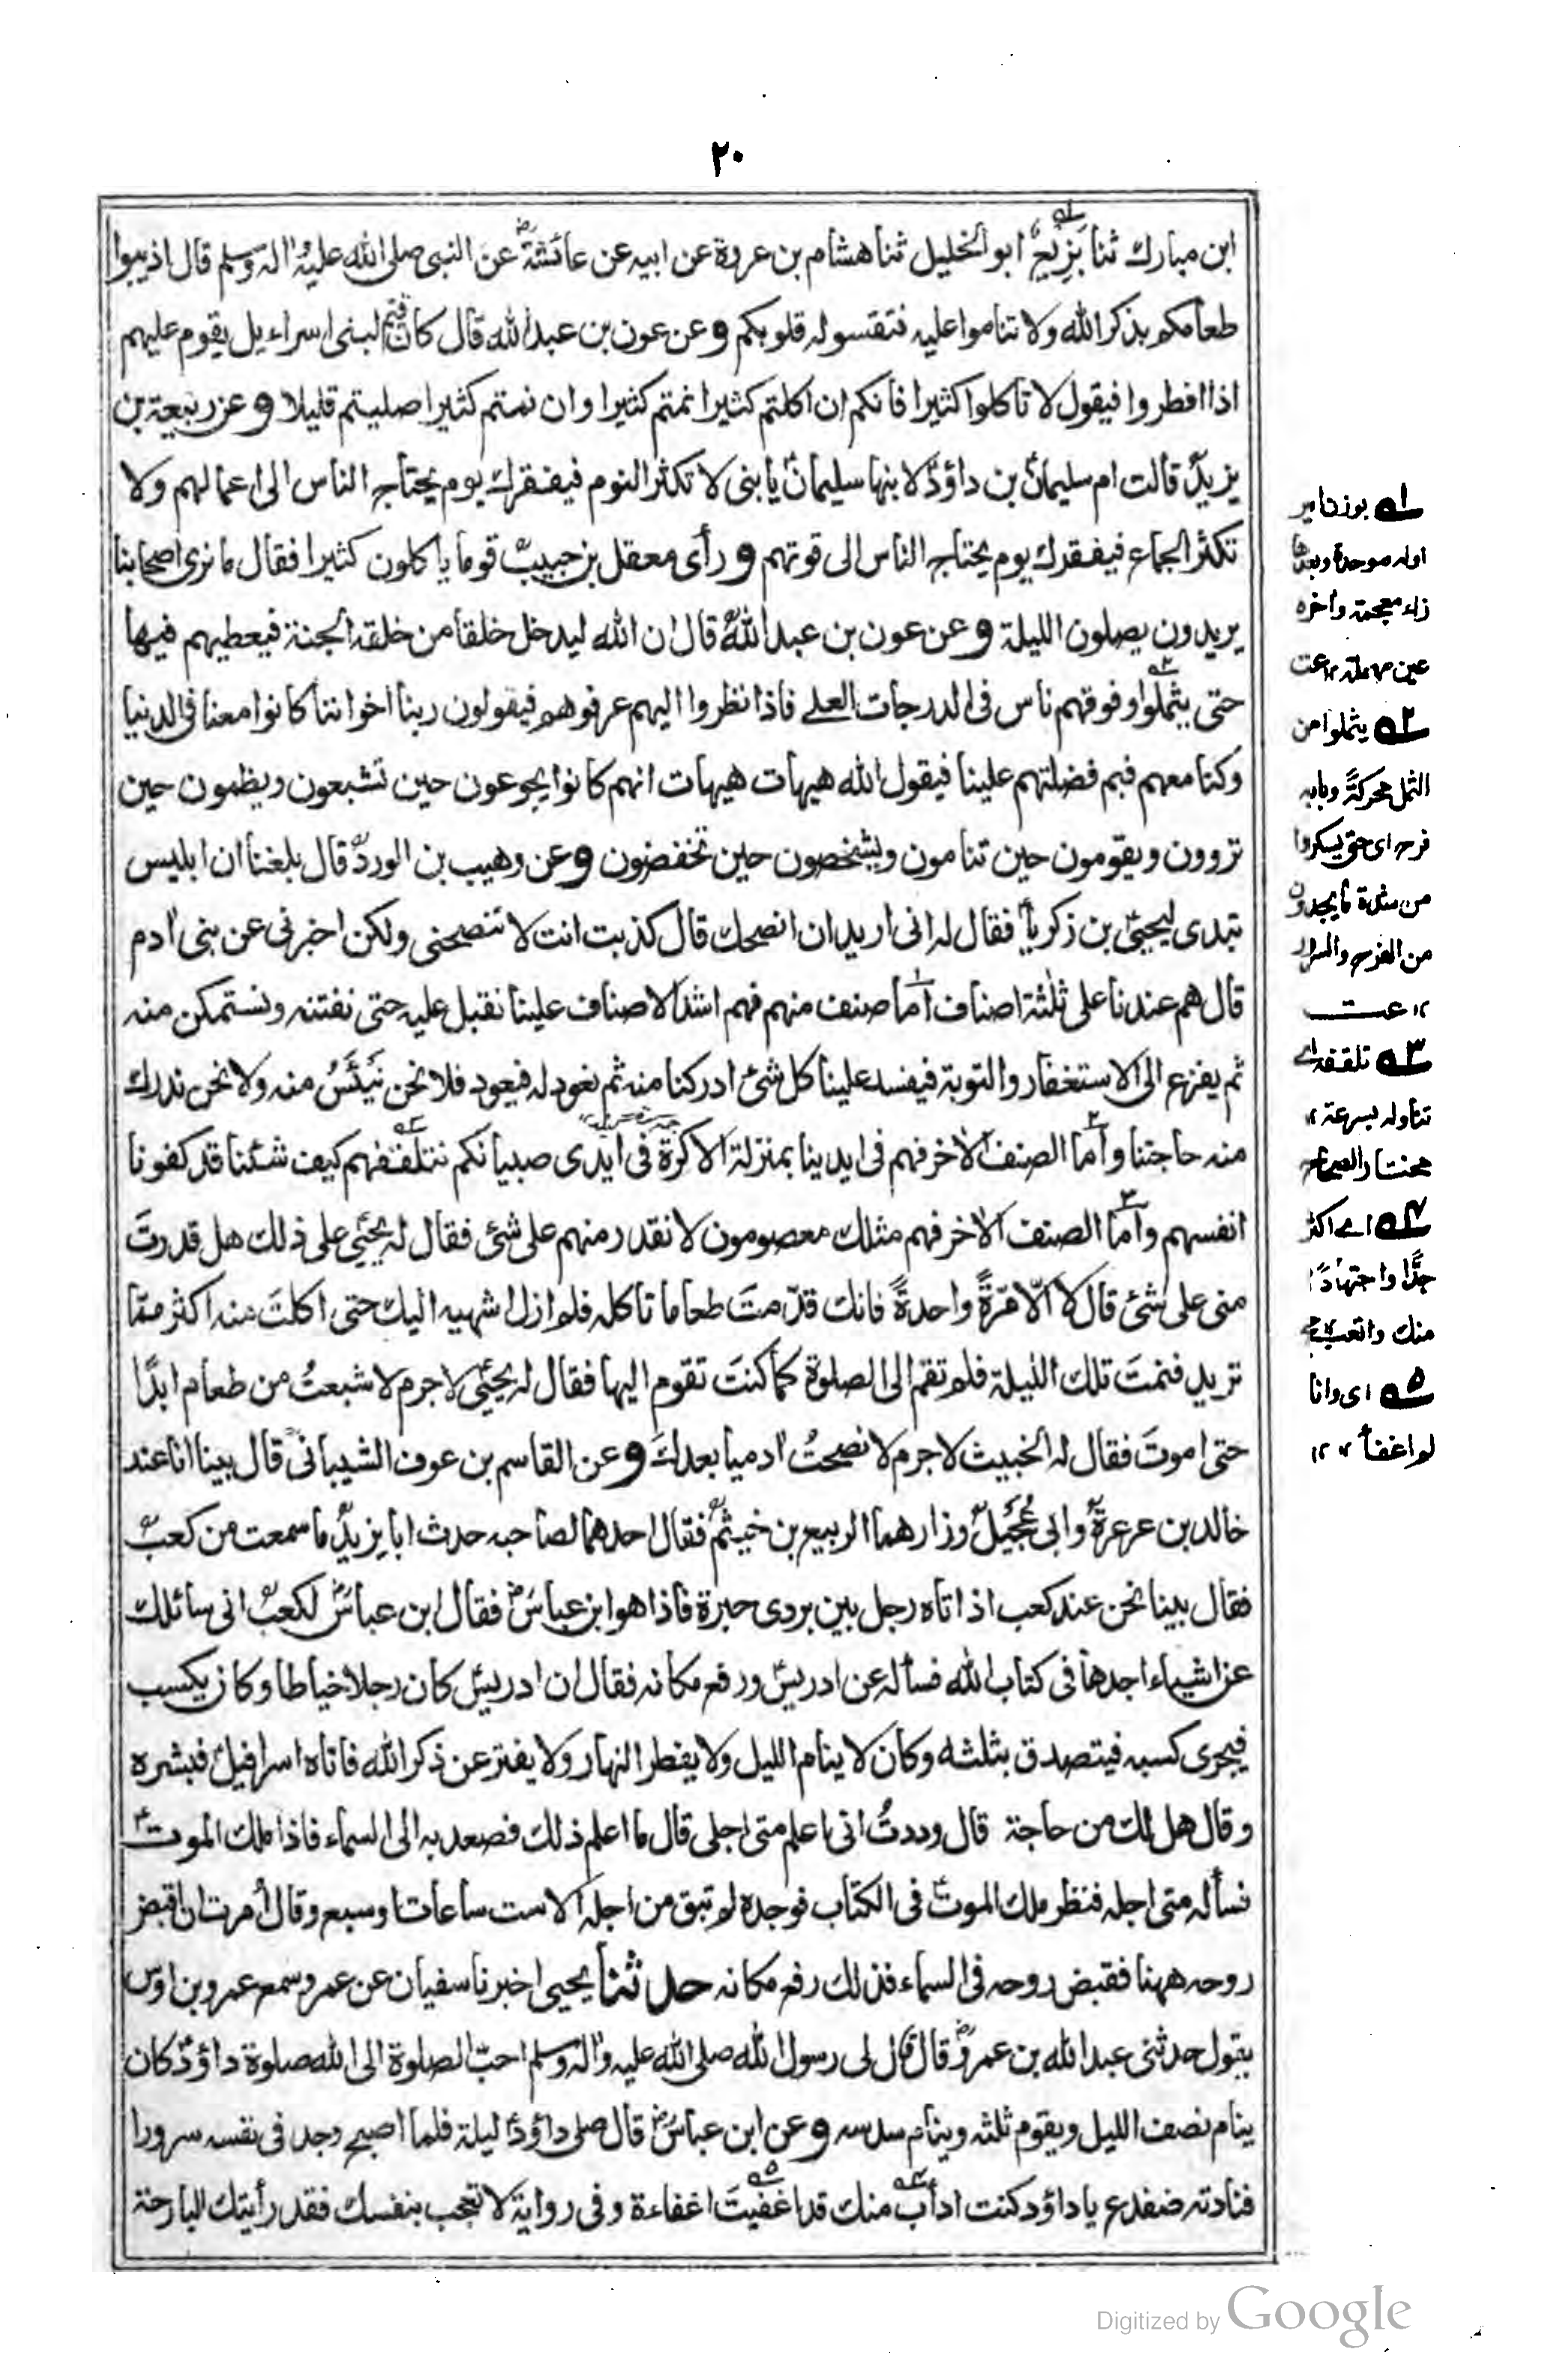 ٢٠
ابن مبارك ثنا بَزِيعٌ ابو الخليل ثنا هشام بن عروة عن ابيه عن عائشة عن النبى صلى الله عليه واله وسلم قال اذيبوا
طعامكم بذكر الله ولا تناموا عليه فتقسو له قلوبكم وعن عون بن عبد الله قال كان قيم لبنى اسراءيل يقوم عليهم
اذا افطروا فيقول لا تاكلوا كثيرا فانكم ان اكلتم كثيرا نمتم كثيرا وان نمتم كثيرا صليتم قليلا وعن ربيعة بن
يزيد قالت ام سليمان بن داؤد لابنها سليمان يا بنى لا تكثر النوم فيفقرك يوم يحتاج الناس الى اعمالهم ولا
تكثر الجماع فيفقرك يوم يحتاج الناس الى قوتهم ورأى معقل بن حبيب قوما ياكلون كثيرا فقال ما نرى اصحابنا
يريدون يصلون الليلة وعن عون بن عبد الله قال ان الله ليدخل خلقا من خلقه الجنة فيعطيهم فيها
حتى يثملوا وفوقهم ناس فى الدرجات العلى فاذا نظروا اليهم عرفوهم فيقولون ربنا اخواننا كانوا معنا فى الدنيا
وكنا معهم فبم فضلتهم علينا فيقول الله هيهات هيهات انهم كانوا يجوعون حين تشبعون ويظمون حين
تروون ويقومون حين تنامون ويشخصون حين تخفضون وعن وهيب بن الورد قال بلغنا ان ابليس
تبدى ليحيى بن زكريا فقال له انى اريد ان انصحك قال كذبت انت لا تنصحنى ولكن اخبرنى عن بنى ادم
قال هم عندنا على ثلثة اصناف اما صنف منهم فهم اشد الاصناف علينا نقبل عليه حتى نفتنه ونستمكن منه
ثم يفزع الى الاستغفار والتوبة فيفسد علينا كل شئ ادركنا منه ثم نعود له فيعود فلا نحن نَيْئَسُ منه ولا نحن ندرك
منه حاجتنا واما الصنف الاخر فهم فى ايدينا بمنزلة الاكرة فى ايدى صبيانكم نتلقفهم كيف شئنا قد كفونا
انفسهم واما الصنف الاخر فهم مثلك معصومون لا نقدر منهم على شئ فقال له يحيى على ذلك هل قدرتَ
منى على شئ قال لا الّا مرّةً واحدةً فانك قدّمتَ طعاما تاكله فلم ازل اشهيه اليك حتى اكلتَ منه اكثر مما
تريد فنمتَ تلك الليلة فلم تقم الى الصلوة كما كنتَ تقوم اليها فقال له يحيى لا جرم لا شبعتُ من طعام ابدًا
حتى اموتَ فقال له الخبيث لا جرم لا نصحتُ ادميا بعدكَ وعن القاسم بن عوف الشيبانى قال بينا انا عند
خالد بن عرعرة وابى عُجَيل وزارهما الربيع بن خيثم فقال احدهما لصاحبه حدث ابا يزيد ما سمعت من كعب
فقال بينا نحن عند كعب اذ اتاه رجل بين بردى حبرة فاذا هو ابن عباس فقال ابن عباس لكعب انى سائلك
عن اشياء اجدها فى كتاب الله فسأله عن ادريس ورفع مكانه فقال ان ادريس كان رجلا خياطا وكان يكسب
فيجزى كسبه فيتصدق بثلثه وكان لا ينام الليل ولا يفطر النهار ولا يفتر عن ذكر الله فاتاه اسرافيل فبشره
وقال هل لك من حاجة قال وددتُ انى اعلم متى اجلى قال ما اعلم ذلك فصعد به الى السماء فاذا ملك الموت
نسأله متى اجله فنظر ملك الموت فى الكتاب فوجده لم تبق من اجله الا ست ساعات او سبع وقال أمرت ان اقبض
روحه ههنا فقبض روحه فى السماء فذلك رفع مكانه حدثنا يحيى اخبرنا سفيان عن عمرو سمع عمرو بن اوس
يقول حدثنى عبد الله بن عمرو قال قال لى رسول الله صلى الله عليه واله وسلم احب الصلوة الى الله صلوة داؤد كان
ينام نصف الليل ويقوم ثلثه وينام سدسه وعن ابن عباس قال صلى داؤد ليلة فلما اصبح وجد فى نفسه سرورا
فنادته ضفدع يا داؤد كنت ادأب منك قد اغفيتَ اغفاءة وفى رواية لا تعجب بنفسك فقد رأيتك البارحة
١ه بوزن امير
اوله موحدة وبعدها
زاء معجمة واخره
عين مهملة ١٢ عت
٢ه يثملوا من
الثمل محركةً وبابه
فرح اى حتى يسكروا
من شدة ما يجدون
من الفرح والسرور
١٢ عت
٣ه تلقفه اى
تناوله بسرعة ١٢
مختار الصحاح
٤ه اى اكثر
جدًّا واجتهادًا
منك واتعب
٥ه اى وانا
لم اغفأ ١٢
Digitized by Google